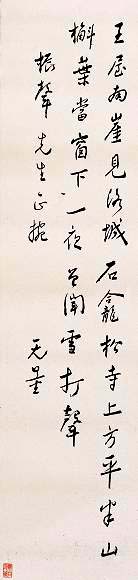 王屋南崖見洛城石龕松寺上方平半山
槲葉當窗下一夜曾聞雪打聲
振聲先生正捥
无量